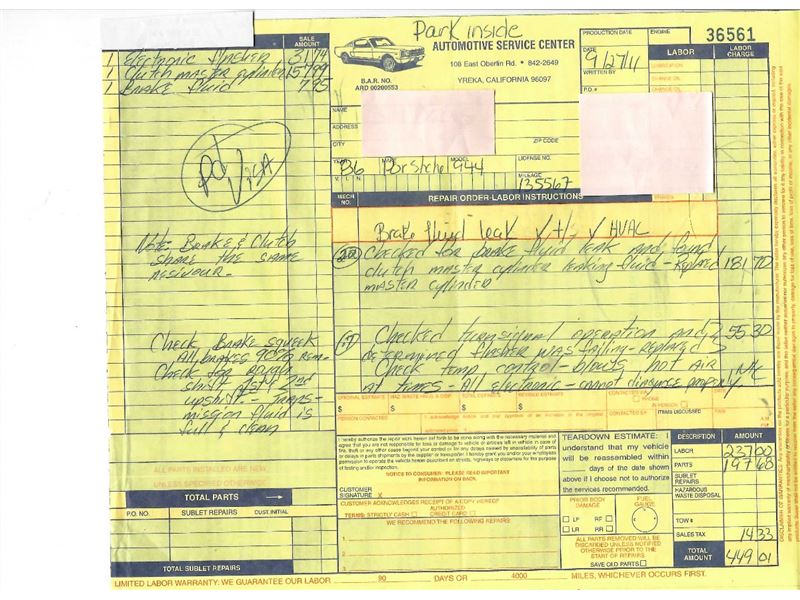 Park inside
36561
SALE AMOUNT
1 Electronic flasher 31 74
1 Clutch master cylinder 157 99
1 Brake fluid 7 95
AUTOMOTIVE SERVICE CENTER
108 East Oberlin Rd. • 842-2649
YREKA, CALIFORNIA 96097
B.A.R. NO.
ARD 00200553
PRODUCTION DATE
ENGINE
DATE
9/27/11
WRITTEN BY
P.O.#
LABOR
LABOR CHARGE
LUBRICATION
CHANGE OIL
NAME
ADDRESS
CITY
ZIP CODE
YEAR MAKE MODEL LICENSE NO.
86 Porstche 944
V. I. N.
MILEAGE
135567
MECH NO.
REPAIR ORDER-LABOR INSTRUCTIONS
Pd Visa
Brake fluid leak ✓ +/- ✓ HVAC
Checked for brake fluid leak and found
clutch master cylinder leaking fluid - Replaced 181 70
master cylinder
Note: Brake & Clutch
share the same
Checked turnsignal operation and 55 30
determined flasher was failing - replaced
Check temp control - blows hot air N/C
at times - All electronic - cannot diagnose properly
Check Brake squeek
All brakes 90% rem-
Check for rough
shift 1st & 2nd
upshift - Trans-
mission fluid is
full & clean
ORIGINAL ESTIMATE
TOTAL ESTIMATE
REVISED ESTIMATE
$ $ $ $
PERSON CONTACTED
CONTACTED BY
PHONE
IN PERSON
ITEMS DISCUSSED
DATE
TIME
I hereby authorize the repair work herein set forth to be done along with the necessary material and
agree that you are not responsible for loss or damage to vehicle or articles left in vehicle in case of
fire, theft or any other cause beyond your control or for any delays caused by unavailability of parts
or delays in parts shipments by the supplier or transporter. I hereby grant you and/or your employees
permission to operate the vehicle herein described on streets, highways or elsewhere for the purpose
of testing and/or inspection.
NOTICE TO CONSUMER: PLEASE READ IMPORTANT
INFORMATION ON BACK.
CUSTOMER
SIGNATURE X
CUSTOMER ACKNOWLEDGES RECEIPT OF A COPY HEREOF
AUTHORIZED
TERMS: STRICTLY CASH CREDIT CARD
WE RECOMMEND THE FOLLOWING REPAIRS:
1.
2.
3.
TEARDOWN ESTIMATE: I
understand that my vehicle
will be reassembled within
days of the date shown
above if I choose not to authorize
the services recommended.
PRIOR BODY DAMAGE
LF RF
LR RR
FUEL GAUGE
ALL PARTS REMOVED WILL BE
DISCARDED UNLESS NOTIFIED
OTHERWISE PRIOR TO THE
START OF REPAIRS
SAVE OLD PARTS
DESCRIPTION AMOUNT
LABOR 237 00
PARTS 197 68
SUBLET REPAIRS
HAZARDOUS WASTE DISPOSAL
TOW #
SALES TAX 14 33
TOTAL AMOUNT 449 01
ALL PARTS INSTALLED ARE NEW
UNLESS SPECIFIED OTHERWISE
TOTAL PARTS
P.O. NO. SUBLET REPAIRS CUST. INITIAL
TOTAL SUBLET REPAIRS
LIMITED LABOR WARRANTY: WE GUARANTEE OUR LABOR 90 DAYS OR 4000 MILES, WHICHEVER OCCURS FIRST.